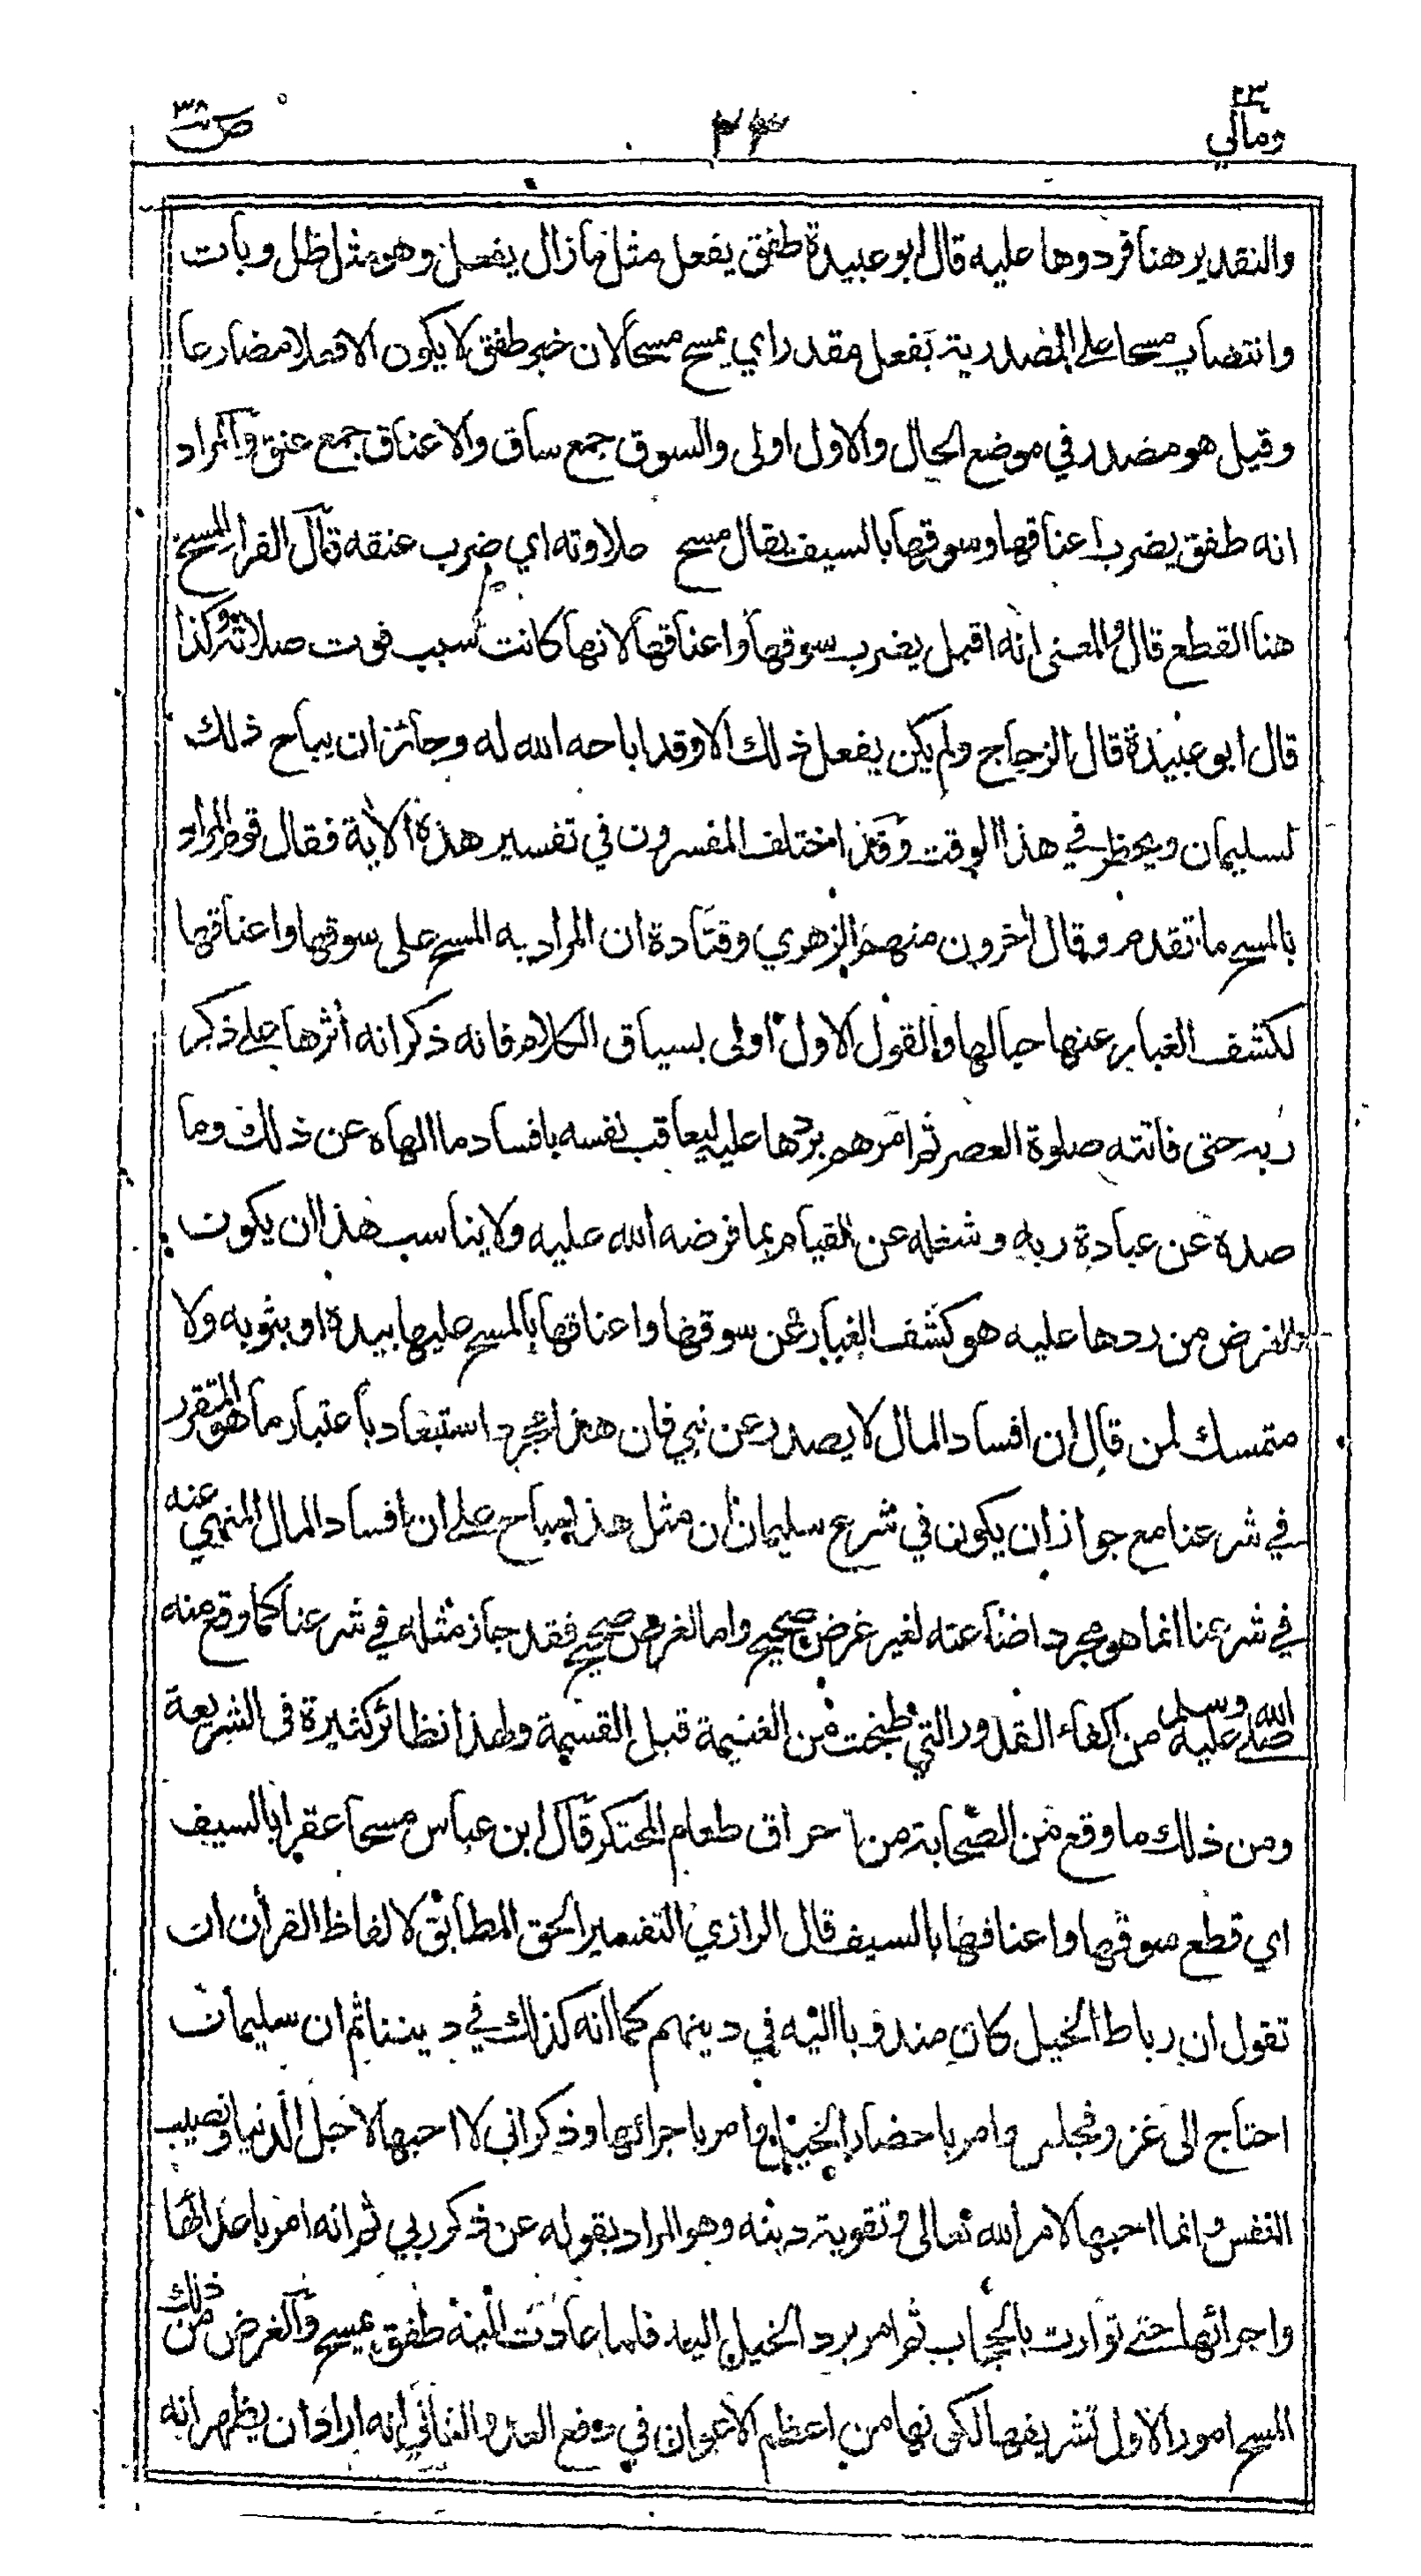 ٢٣ ومالي ٢٤٣ ص ٣٨
والتقدير هنا فردوها عليه قال ابو عبيدة طفق يفعل مثل ما زال يفعل وهو مثل ظل وبات
وانتصاب مسحا على المصدرية بفعل مقدر اي يمسح مسحا لان خبر طفق لا يكون الا فعلا مضارعا
وقيل هو مصدر في موضع الحال والاول اولى والسوق جمع ساق والاعناق جمع عنق والمراد
انه طفق يضرب اعناقها وسوقها بالسيف يقال مسح علاوته اي ضرب عنقه قال الفراء المسح
هنا القطع قال والمعنى انه اقبل يضرب سوقها واعناقها لانها كانت سبب فوت صلاته وكذا
قال ابو عبيدة قال الزجاج ولم يكن يفعل ذلك الا وقد اباحه الله له وجائز ان يباح ذلك
لسليمان ويحظر في هذا الوقت وقد اختلف المفسرون في تفسير هذه الآية فقال قوم المراد
بالمسح ما تقدم وقال آخرون منهم الزهري وقتادة ان المراد به المسح على سوقها واعناقها
لكشف الغبار عنها حبا لها والقول الاول اولى بسياق الكلام فانه ذكر انه آثرها على ذكر
ربه حتى فاتته صلوة العصر ثم امرهم بردها عليه ليعاقب نفسه بافساد ما الهاه عن ذلك وما
صده عن عبادة ربه وشغله عن القيام بما فرضه الله عليه ولا يناسب هذا ان يكون
الغرض من ردها عليه هو كشف الغبار عن سوقها واعناقها بالمسح عليها بيده او بثوبه ولا
متمسك لمن قال ان افساد المال لا يصدر عن نبي فان هذا مجرد استبعاد باعتبار ما هو المتقرر
في شرعنا مع جواز ان يكون في شرع سليمان ان مثل هذا مباح على ان افساد المال المنهي عنه
في شرعنا انما هو مجرد اضاعته لغير غرض صحيح واما لغرض صحيح فقد جاز مثله في شرعنا كما وقع منه
صلى الله عليه وسلم من اكفاء القدور التي طبخت من الغنيمة قبل القسمة ولهذا نظائر كثيرة في الشريعة
ومن ذلك ما وقع من الصحابة من احراق طعام المحتكر قال ابن عباس مسحا عقرا بالسيف
اي قطع سوقها واعناقها بالسيف قال الرازي التفسير الحق المطابق لالفاظ القرآن ان
تقول ان رباط الخيل كان مندوبا اليه في دينهم كما انه كذلك في ديننا ثم ان سليمان
احتاج الى غزو فجلس وامر باحضار الخيل وامر باجرائها وذكر اني لا احبها لاجل الدنيا ونصيب
النفس وانما احبها لامر الله تعالى وتقوية دينه وهو المراد بقوله عن ذكر ربي ثم انه امر باعدائها
واجرائها حتى توارت بالحجاب ثم امر برد الخيل اليه فلما عادت اليه طفق يمسح والغرض من ذلك
المسح امور الاول تشريفها لكونها من اعظم الاعوان في دفع العدو والثاني انه اراد ان يظهر انه